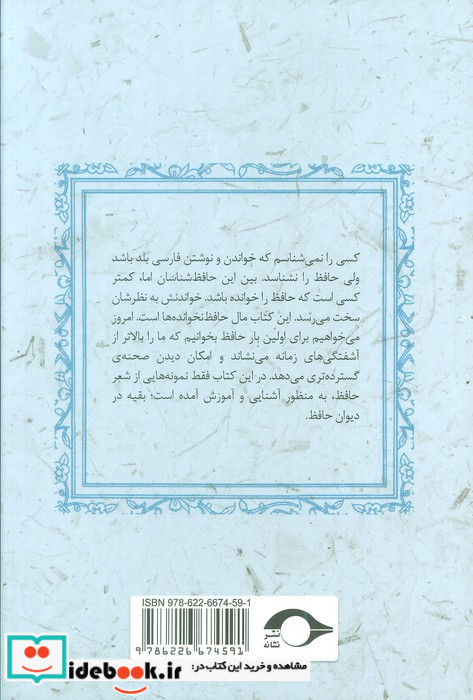 کسی را نمی‌شناسم که خواندن و نوشتن فارسی بَلَد باشد
ولی حافظ را نشناسد. بین این حافظ‌شناسان اما، کمتر
کسی است که حافظ را خوانده باشد. خواندنش به نظرشان
سخت می‌رسد. این کتاب مال حافظ‌نخوانده‌ها است. امروز
می‌خواهیم برای اولین بار حافظ بخوانیم که ما را بالاتر از
آشفتگی‌های زمانه می‌نشاند و امکان دیدن صحنه‌ی
گسترده‌تری می‌دهد. در این کتاب فقط نمونه‌هایی از شعر
حافظ، به منظور آشنایی و آموزش آمده است؛ بقیه در
دیوان حافظ.
ISBN 978-622-6674-59-1
9 786226 674591
نشر
نشانه
idebook.ir
مشاهده و خرید این کتاب در: